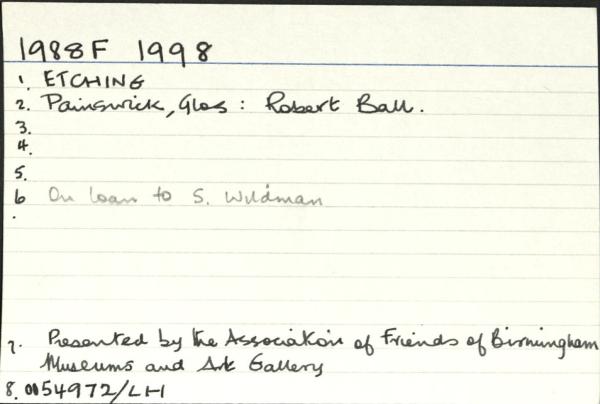 1988F 1998
1. ETCHING
2. Painswick, Glos : Robert Ball.
3.
4.
5.
6 On loan to S. Wildman
.
7. Presented by the Association of Friends of Birmingham
Museums and Art Gallery
8. 0054972/LH